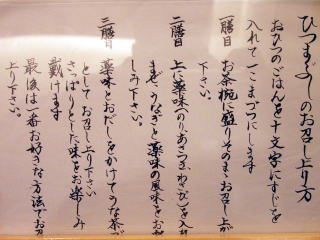 ひつまぶしのお召し上り方
おひつのごはんを十文字にすじを
入れて一こまづつにします
一膳目 お茶椀に盛りそのままお召し上が
下さい。
二膳目 上に薬味のり、あさつき、わさびを入れ
まぜうなぎと薬味の風味をお
しみ下さい。
三膳目 薬味とおだしをかけてうな茶
としてお召し上り下さい
さっぱりとした味をお楽しみ
戴けます
最後は一番お好きな方法でお召
上り下さい。